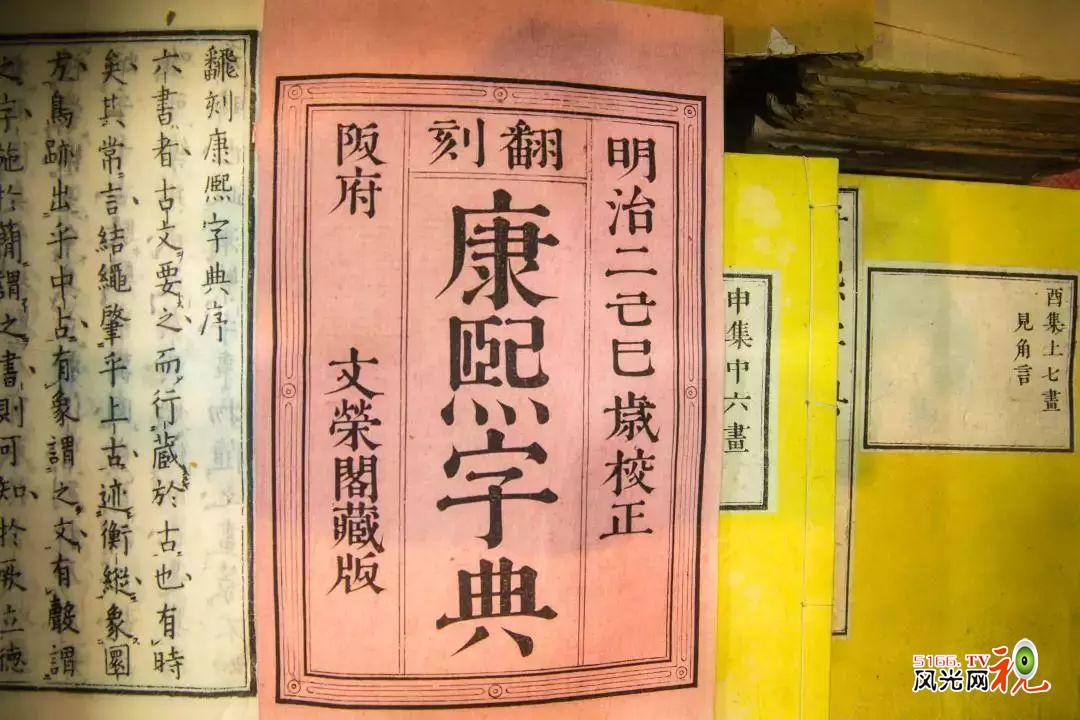 酉集上七畫
見角言
申集中六畫
明治二己巳歳校正
翻刻
康熙字典
阪府 文榮閣藏版
飜刻康熙字典序
六書者古文要之而行藏於古也有時
矣其常言結繩肇乎上古迹衡縱象圜
方鳥跡出乎中占有象謂之文有聲謂
之字施於簡謂之書則可知於厥立德
5166.TV
风光网视